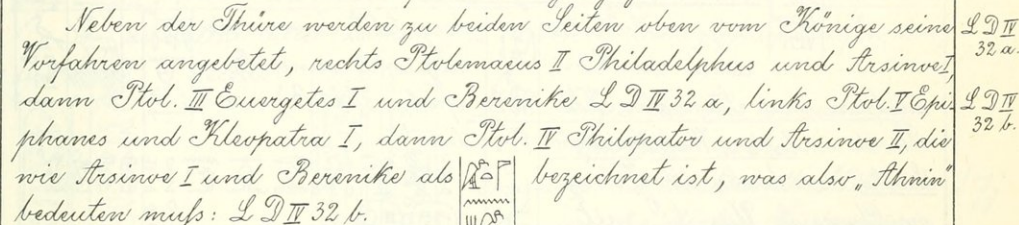 Neben der Thüre werden zu beiden Seiten oben vom Könige seine
Vorfahren angebetet, rechts Ptolemaeus II Philadelphus und Arsinoe I,
dann Ptol. III Euergetes I und Berenike L D IV 32 a, links Ptol. V Epi-
phanes und Kleopatra I, dann Ptol. IV Philopator und Arsinoe II, die
wie Arsinoe I und Berenike als bezeichnet ist, was also „Ahnin“
bedeuten muß: L D IV 32 b.
L D IV
32 a.
L D IV
32 b.